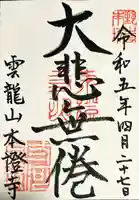 令和五年四月二十七日
大悲無倦
雲龍山本證寺